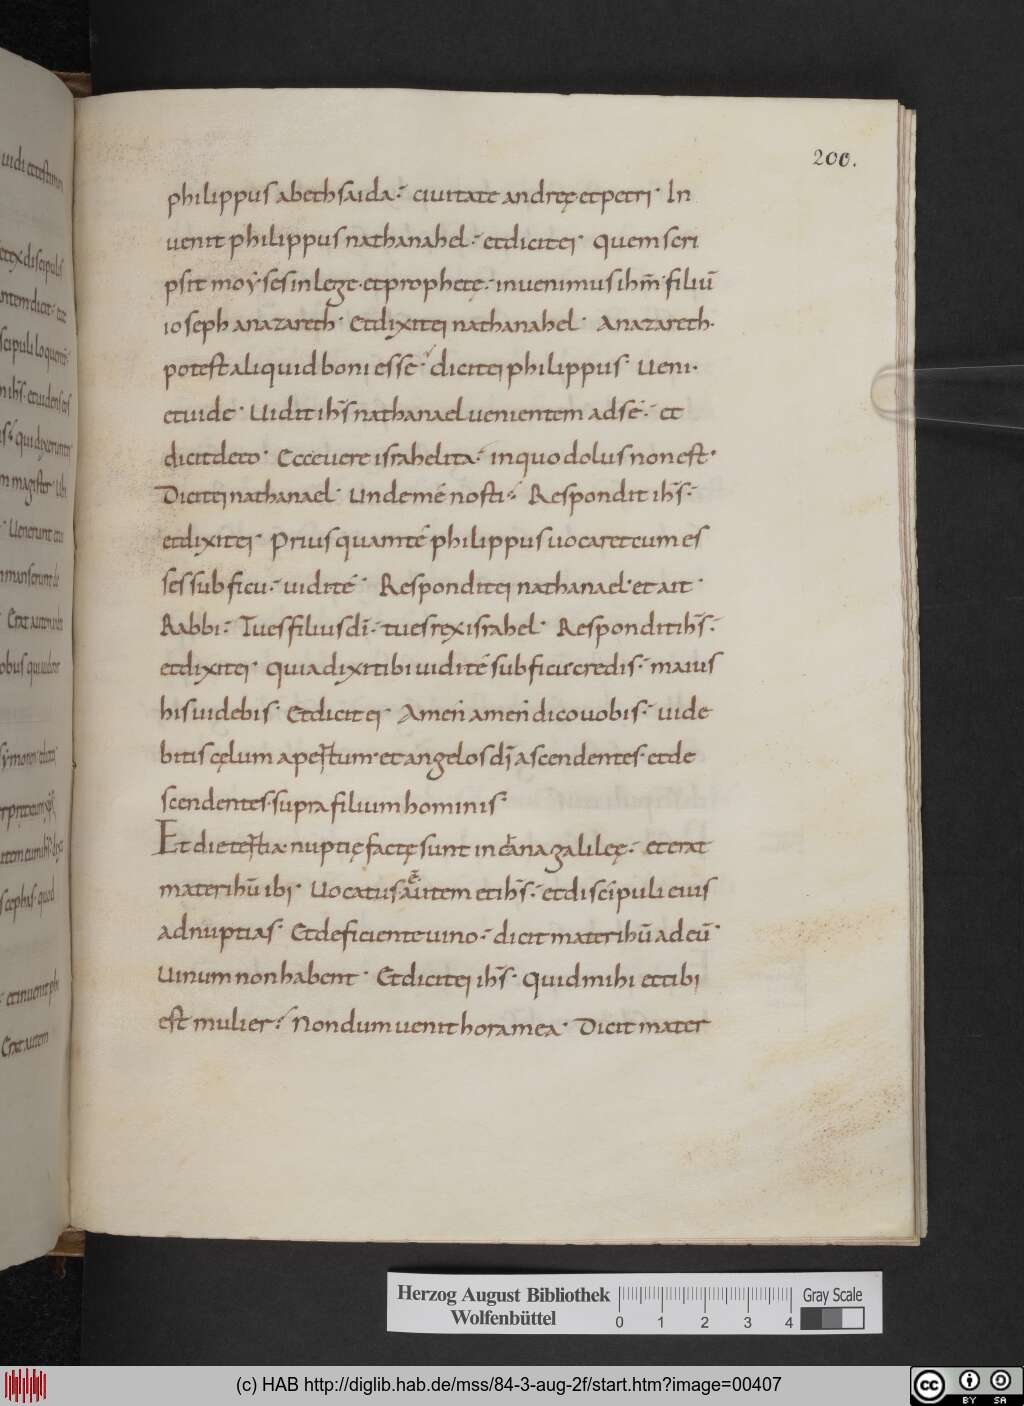 200.
philippus abethsaida· ciuitate andreę etpetri· In
uenit philippus nathanahel· etdicitei· quem scri
psit moẏses inlege· etprophetę· inuenimus ihm̄ filiū
ioseph anazareth· Etdixitei nathanahel· Anazareth·
potest aliquid boni esse· dicitei philippus· Ueni·
etuide· Uidit ihs̄ nathanael uenientem adsé· et
dicitdeeo· Ecceuere israhelita· inquo dolus non est·
Dicitei nathanael· Undemé nosti· Respondit ihs̄·
etdixitei· Priusquamté philippus uocaret cum es
ses sub ficu· uidité· Responditei nathanael· et ait·
Rabbi· Tues filius dī· tues rex israhel· Respondit ihs̄·
etdixitei· quia dixi tibi uidité sub ficu credis· maius
his uidebis· Etdicit ei· Amen amen dico uobis· uide
bitis cęlum apertum· et angelos dī ascendentes· etde
scendentes· supra filium hominis·
Et die tertia· nuptię factę sunt in cána galileę· et erat
mater ihū ibi· Uocatus· autem et ihs̄· et discipuli eius
ad nuptias· Et deficiente uino· dicit mater ihū ad eū·
Uinum non habent· Et dicitei ihs̄· Quid mihi ettibi
est mulier· Nondum uenit hora mea· Dicit mater
Herzog August Bibliothek
Wolfenbüttel
0 1 2 3 4
Gray Scale
(c) HAB http://diglib.hab.de/mss/84-3-aug-2f/start.htm?image=00407
cc BY SA